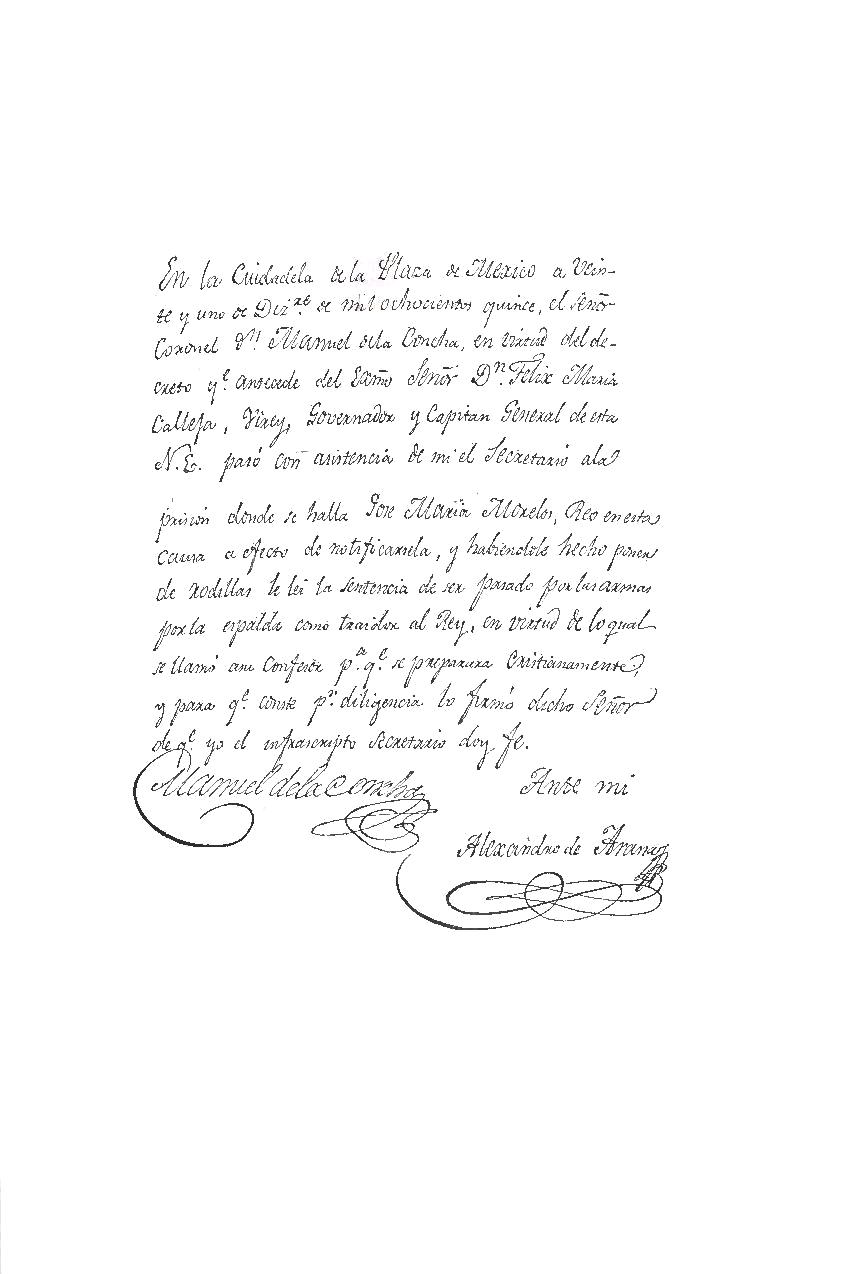 En la Ciudadela de la Plaza de Mexico a Vein-
te y uno de Diz.re de mil ochocientos quince, el Señor
Coronel Dn Manuel dela Concha, en virtud del de-
creto q.e antecede del Exmo Señor Dn. Felix Maria
Calleja, Virey, Governador y Capitan General de esta
N.E. pasó con asistencia de mi el Secretario ala
prision donde se halla Jose Maria Morelos, Reo en esta
causa a efecto de notificarsela, y habiendole hecho poner
de rodillas le lei la sentencia de ser pasado por las armas
por la espalda como traidor al Rey, en virtud de lo qual
se llamó a un Confesor p.a q.e se preparara Cristianamente,
y para q.e conste p.r diligencia lo firmó dicho Señor
de q.e yo el infrascripto Secretario doy fe.
Manuel dela Concha
Ante mi
Alexandro de Arana